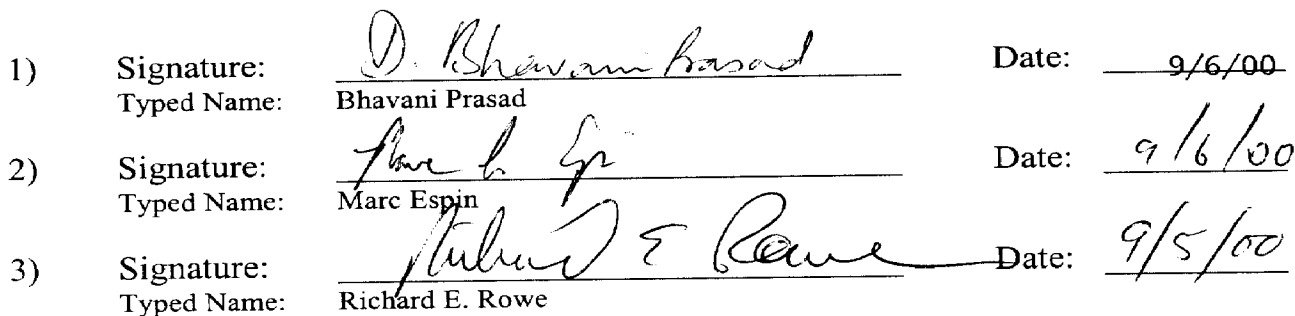 1) Signature: D. Bhavani Prasad Date: 9/6/00
Typed Name: Bhavani Prasad
2) Signature: Date: 9/6/00
Typed Name: Marc Espin
3) Signature: Richard E Rowe Date: 9/5/00
Typed Name: Richard E. Rowe